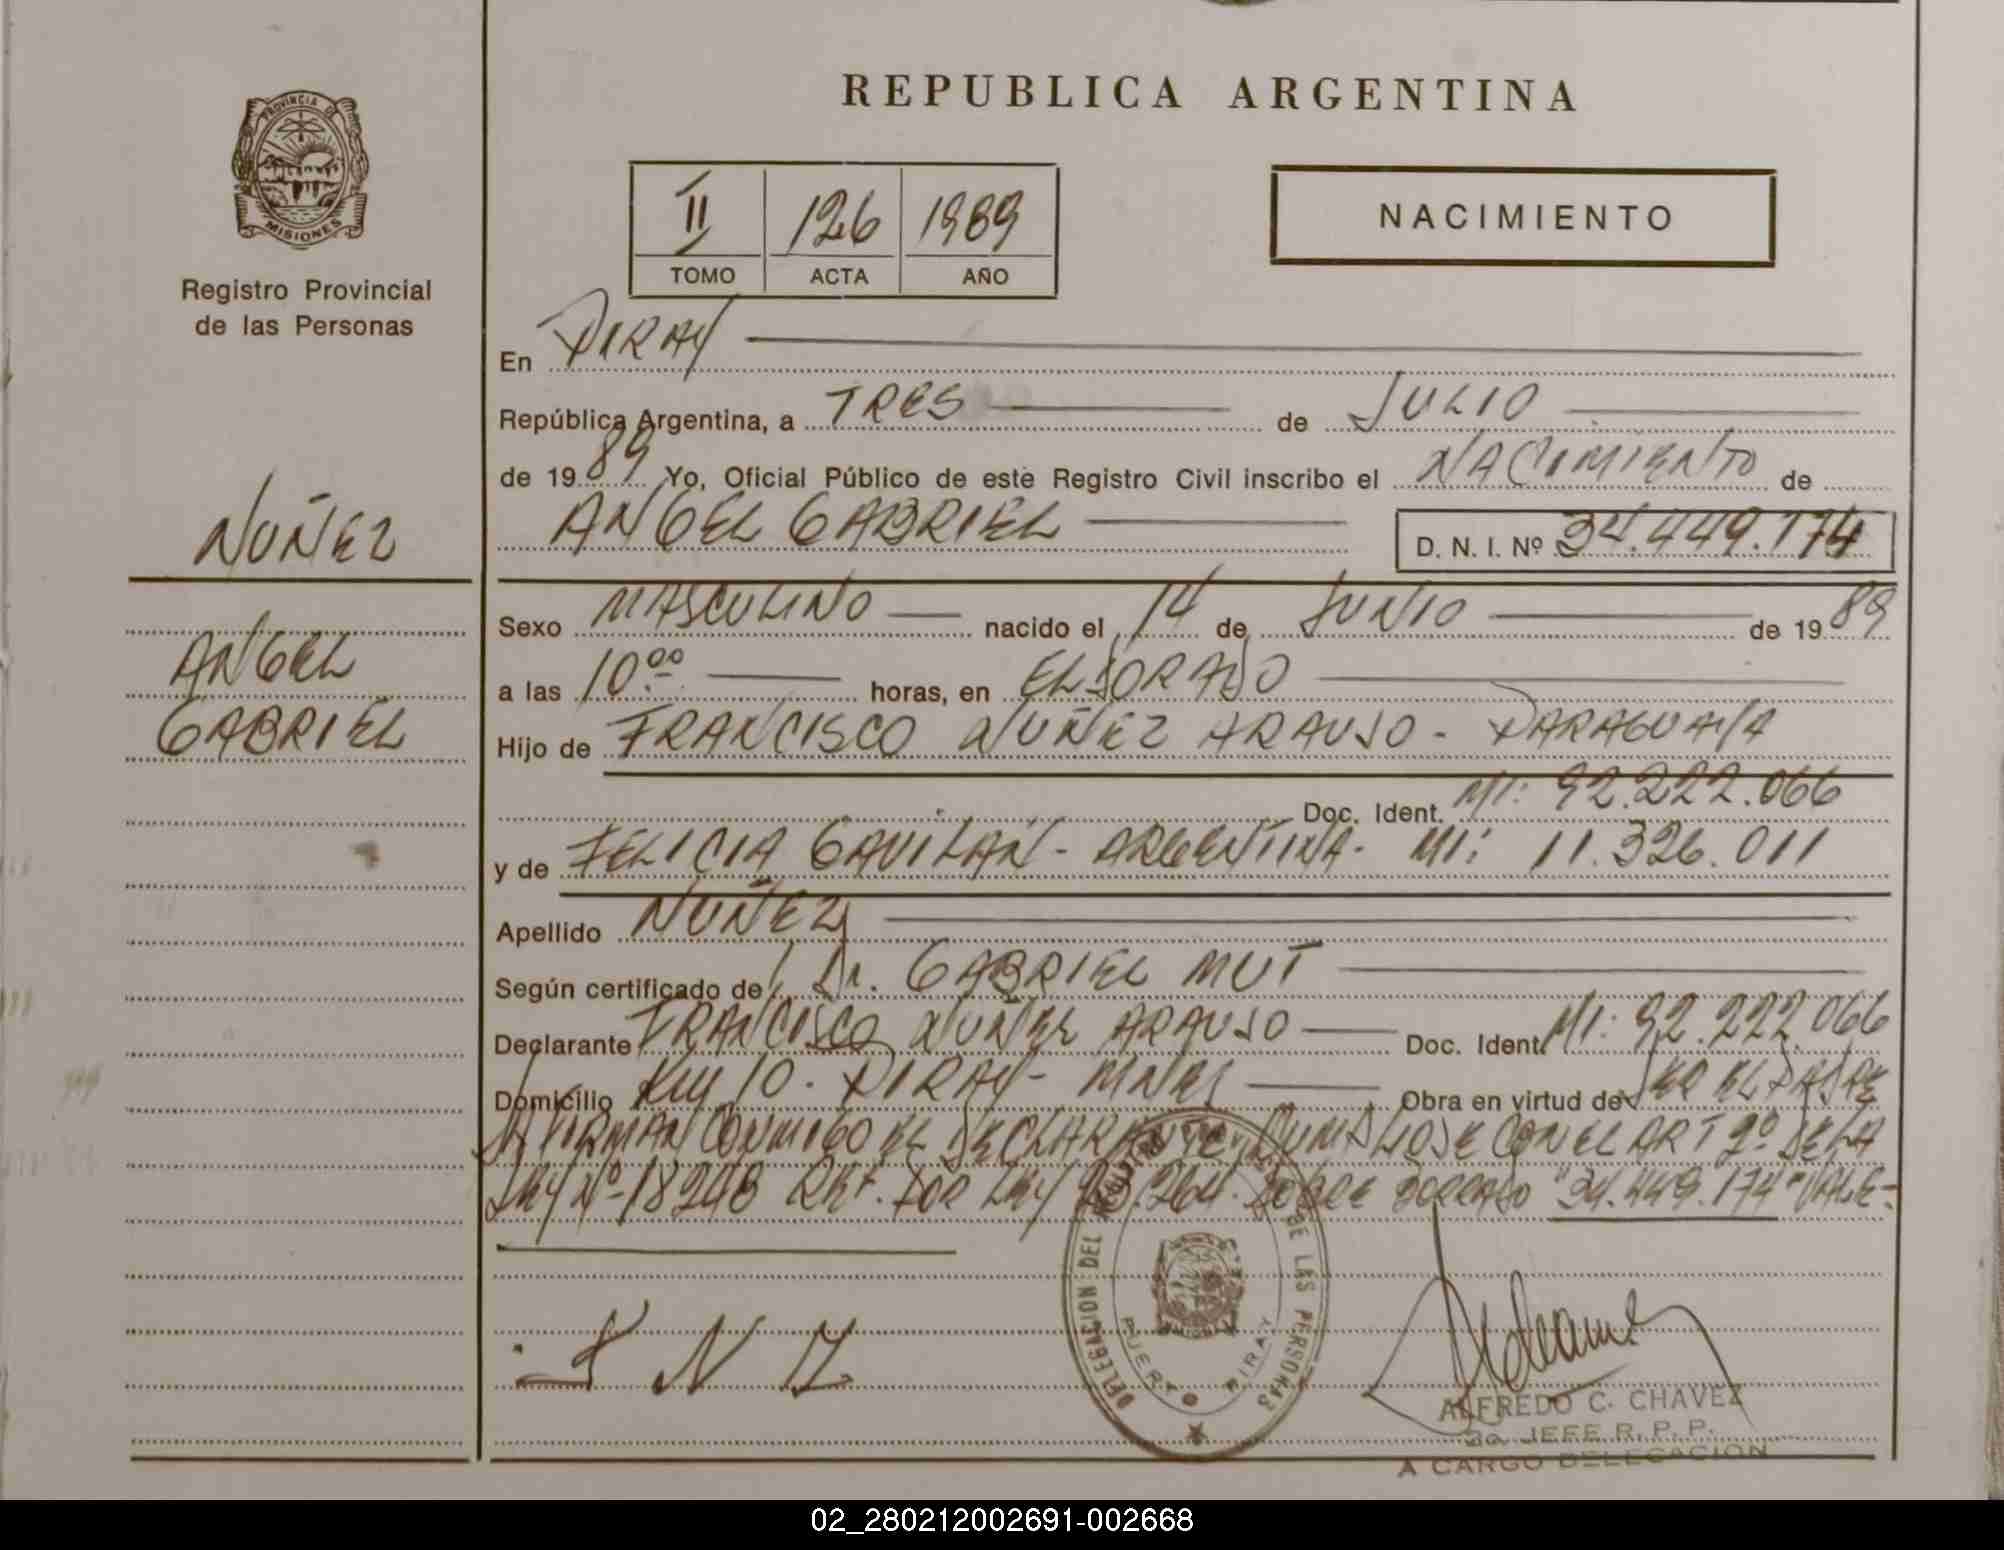 REPUBLICA ARGENTINA
PROVINCIA DE
MISIONES
Registro Provincial
de las Personas
II 126 1989
TOMO ACTA AÑO
NACIMIENTO
En PIRAY
República Argentina, a TRES de JULIO
de 19 89 Yo, Oficial Público de este Registro Civil inscribo el NACIMIENTO de
ANGEL GABRIEL D. N. I. Nº 34.449.174
NUÑEZ
ANGEL
GABRIEL
Sexo MASCULINO nacido el 14 de JUNIO de 19 89
a las 10:00 horas, en ELDORADO
Hijo de FRANCISCO NUÑEZ ARAUJO - PARAGUAYA
Doc. Ident. MI: 92.222.066
y de FELICIA GAVILÁN - ARGENTINA - MI: 11.326.011
Apellido NUÑEZ
Según certificado de Dr. GABRIEL MUT
Declarante FRANCISCO NUÑEZ ARAUJO Doc. Ident. MI: 92.222.066
Domicilio Km 10 - PIRAY - MNES Obra en virtud de SER EL PADRE
FIRMAN CONMIGO EL DECLARANTE, CUMPLIOSE CON EL ART 2º DE LA
LEY Nº 18248 RET. POR LEY 23.264. SOBRE BORRADO "34.449.174" VALE-
F N Z
DELEGACION DEL REGISTRO DE LAS PERSONAS
PUERTO PIRAY
ALFREDO C. CHAVEZ
JEFE R. P. P.
A CARGO DELEGACION
02_280212002691-002668